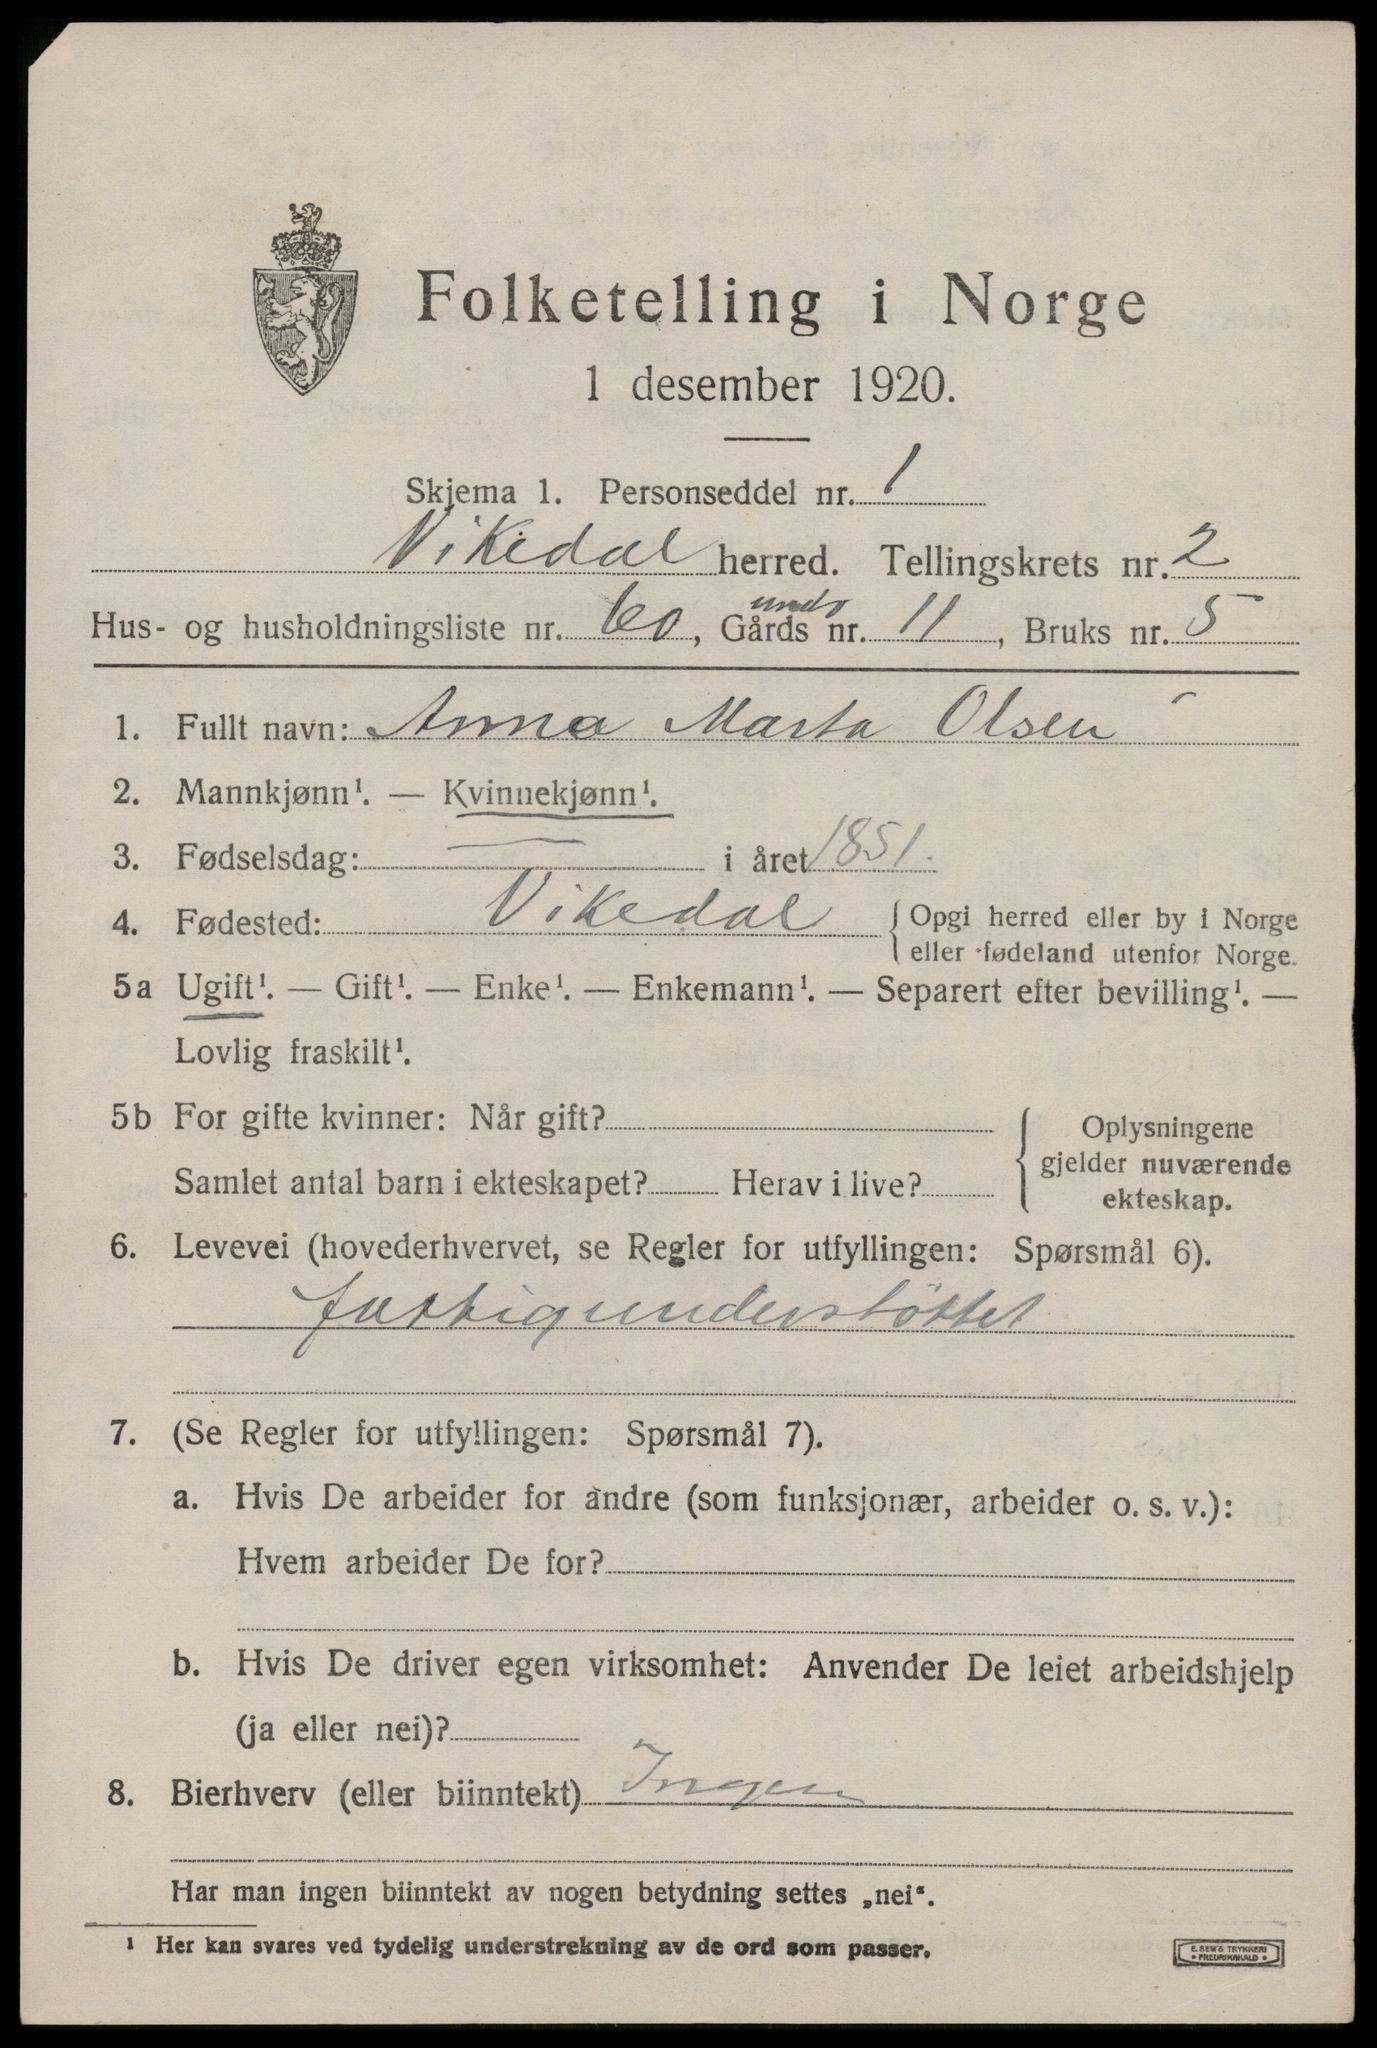 Folketelling i Norge
1 desember 1920.
Skjema 1. Personseddel nr. 1
Vikedal herred. Tellingskrets nr. 2
unds
Hus- og husholdningsliste nr. 60, Gårds nr. 11, Bruks nr. 5
1. Fullt navn: Anna Marta Olsen
2. Mannkjønn¹. — Kvinnekjønn¹.
3. Fødselsdag: — i året 1851.
4. Fødested: Vikedal { Opgi herred eller by i Norge
eller fødeland utenfor Norge.
5a Ugift¹. — Gift¹. — Enke¹. — Enkemann¹. — Separert efter bevilling¹. —
Lovlig fraskilt¹.
5b For gifte kvinner: Når gift?
Samlet antal barn i ekteskapet? Herav i live?
{ Oplysningene
gjelder nuværende
ekteskap.
6. Levevei (hovederhvervet, se Regler for utfyllingen: Spørsmål 6).
fattigunderstöttet
7. (Se Regler for utfyllingen: Spørsmål 7).
a. Hvis De arbeider for andre (som funksjonær, arbeider o. s. v.):
Hvem arbeider De for?
b. Hvis De driver egen virksomhet: Anvender De leiet arbeidshjelp
(ja eller nei)?
8. Bierhverv (eller biinntekt) Ingen
Har man ingen biinntekt av nogen betydning settes „nei“.
¹ Her kan svares ved tydelig understrekning av de ord som passer.
E. SEM'S TRYKKERI
• FREDRIKSHALD •